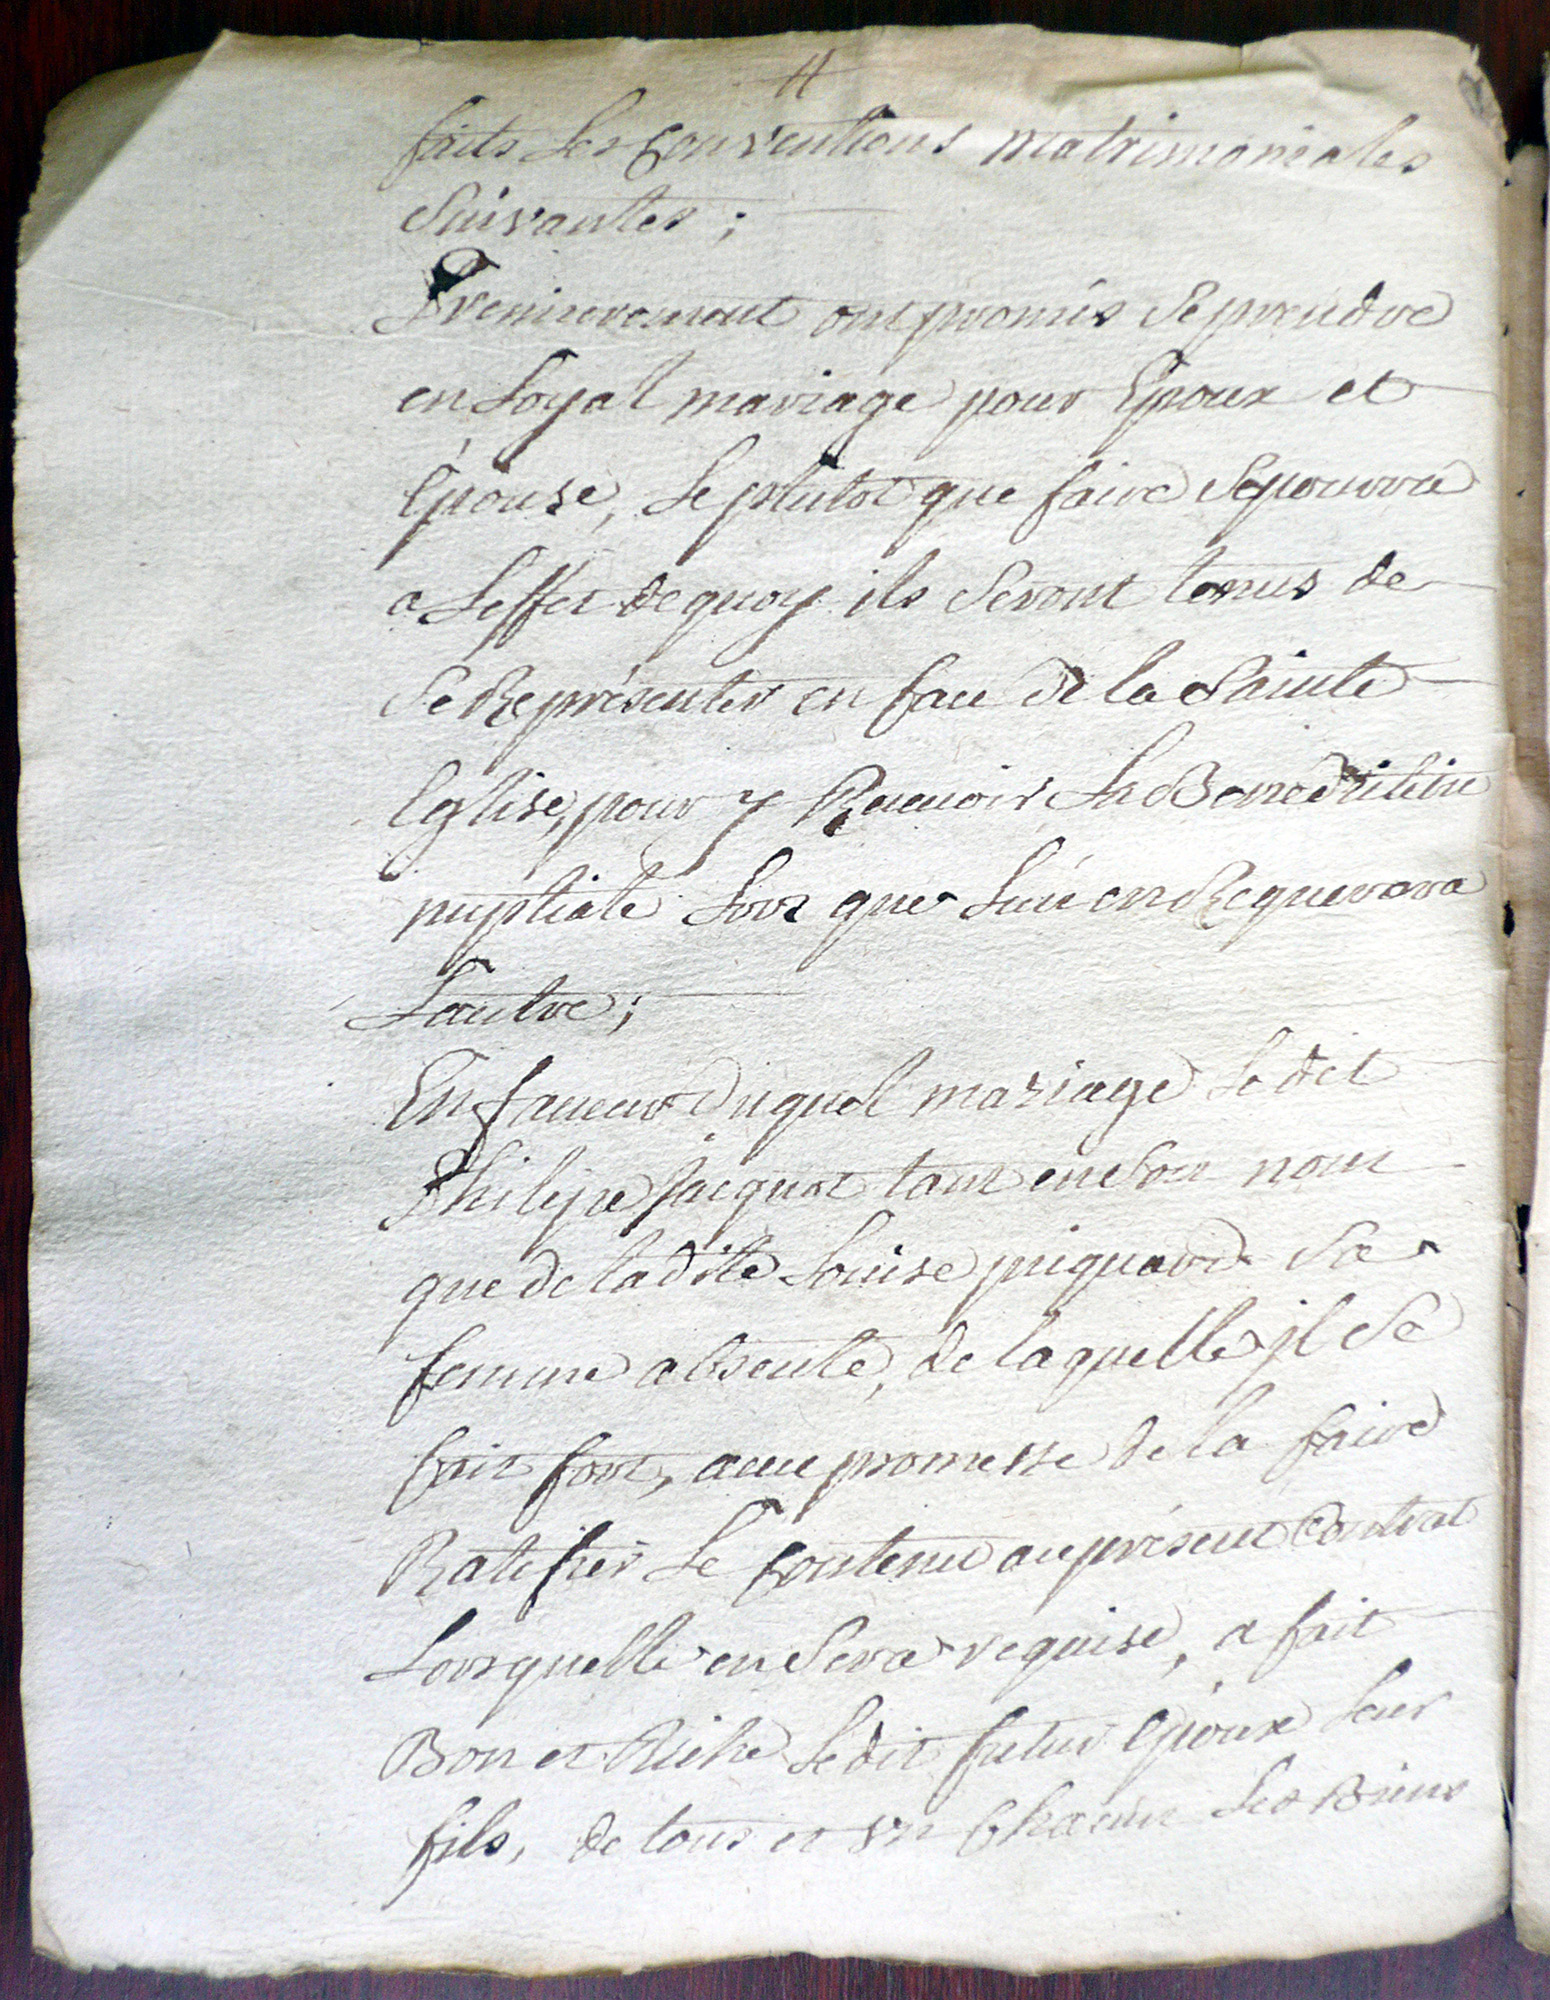 faits les Conventions matrimoniales
Suivantes ;
Premierement ont promis Se prendre
en Loyal mariage pour Epoux et
Epouse, Le plutot que faire Se pourra
a Leffet de quoy ils Seront tenus de
Se Représenter en face de la Sainte
Eglise, pour y Recevoir La Benediction
nuptiale Lors que Lun en Requerera
Lautre ;
En faveur duquel mariage Le dit
Philipe Jacquot tant en Son nom
que de ladite Louise piquard Sa
femme absente, de laquelle jl Se
fait fort, avec promesse de la faire
Ratifier Le Contenu au présent Contrat
Lorsquelle en Sera requise, a fait
Bon et Riche Le dit futur Epoux Leur
fils, de tous et vn Chacun Les Biens